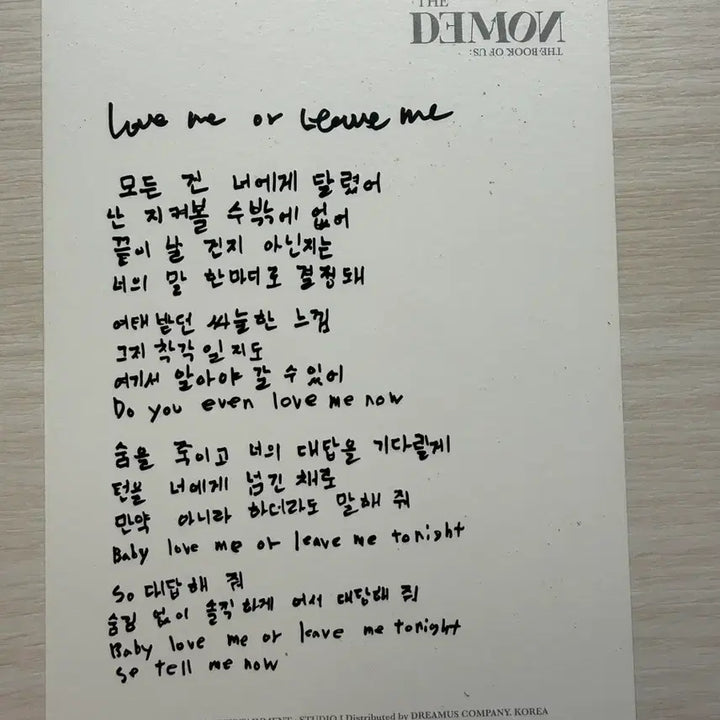 THE
DEMON
THE BOOK OF US:
Love me or Leave me
모든 건 너에게 달렸어
난 지켜볼 수밖에 없어
끝이 날 건지 아닌지는
너의 말 한마디로 결정돼
여태 받던 싸늘한 느낌
그저 착각일지도
여기서 알아야 갈 수 있어
Do you even love me now
숨을 죽이고 너의 대답을 기다릴게
턴을 너에게 넘긴 채로
만약 아니라 하더라도 말해 줘
Baby love me or leave me tonight
So 대답해 줘
숨김 없이 솔직하게 어서 대답해 줘
Baby love me or leave me tonight
So tell me now
STUDIO J Distributed by DREAMUS COMPANY. KOREA